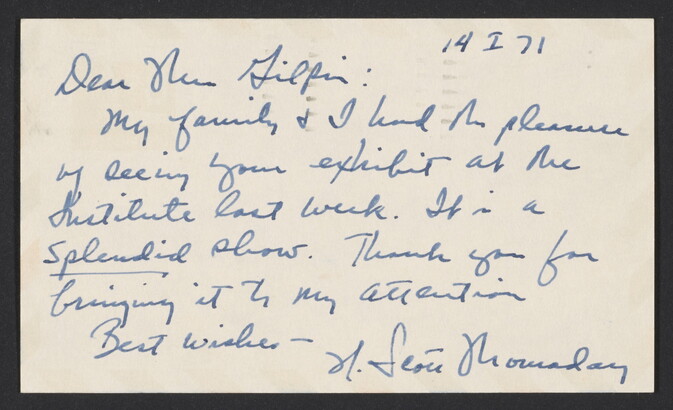 14 I 71
Dear Miss Gilpin:
My family & I had the pleasure
of seeing your exhibit at the
Institute last week. It is a
splendid show. Thank you for
bringing it to my attention
Best wishes –
N. Scott Momaday